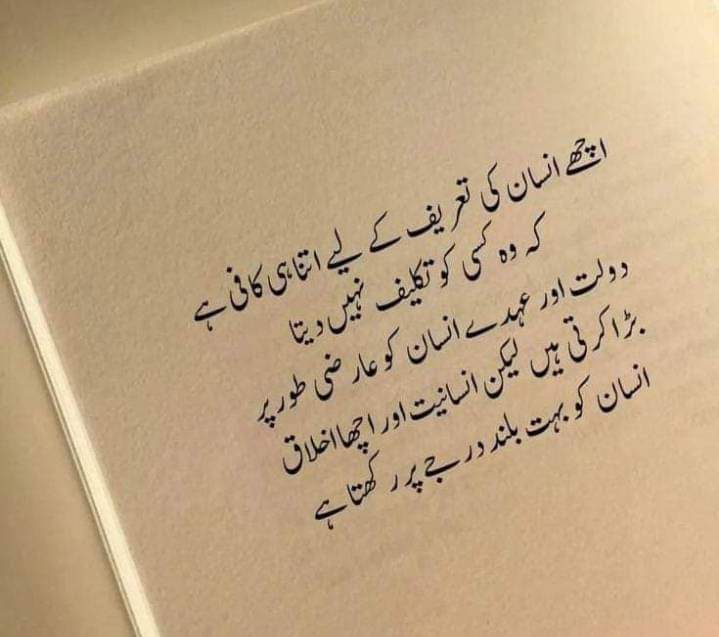 اچھے انسان کی تعریف کے لیے اتنا ہی کافی ہے
کہ وہ کسی کو تکلیف نہیں دیتا
دولت اور عہدے انسان کو عارضی طور پر
بڑا کرتی ہیں لیکن انسانیت اور اچھا اخلاق
انسان کو بہت بلند درجے پر رکھتا ہے